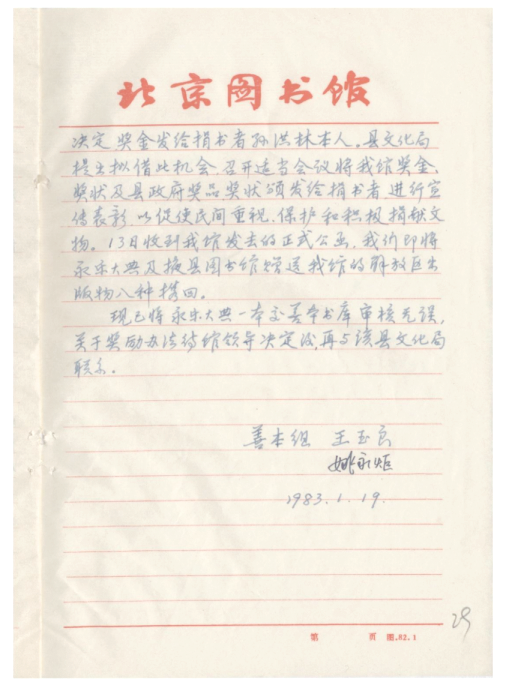 北京图书馆
决定奖金发给捐书者孙洪林本人。县文化局
提出拟借此机会,召开适当会议将我馆奖金、
奖状及县政府奖品奖状颁发给捐书者进行宣
传表彰,以促使民间重视、保护和积极捐献文
物。13日收到我馆发去的正式公函,我们即将
永乐大典及掖县图书馆赠送我馆的解放区出
版物八种携回。
现已将永乐大典一本交善本书库审核无误,
关于奖励办法待馆领导决定后,再与该县文化局
联系。
善本组 王玉良
姚永炬
1983.1.19.
第 页 图.82.1
29